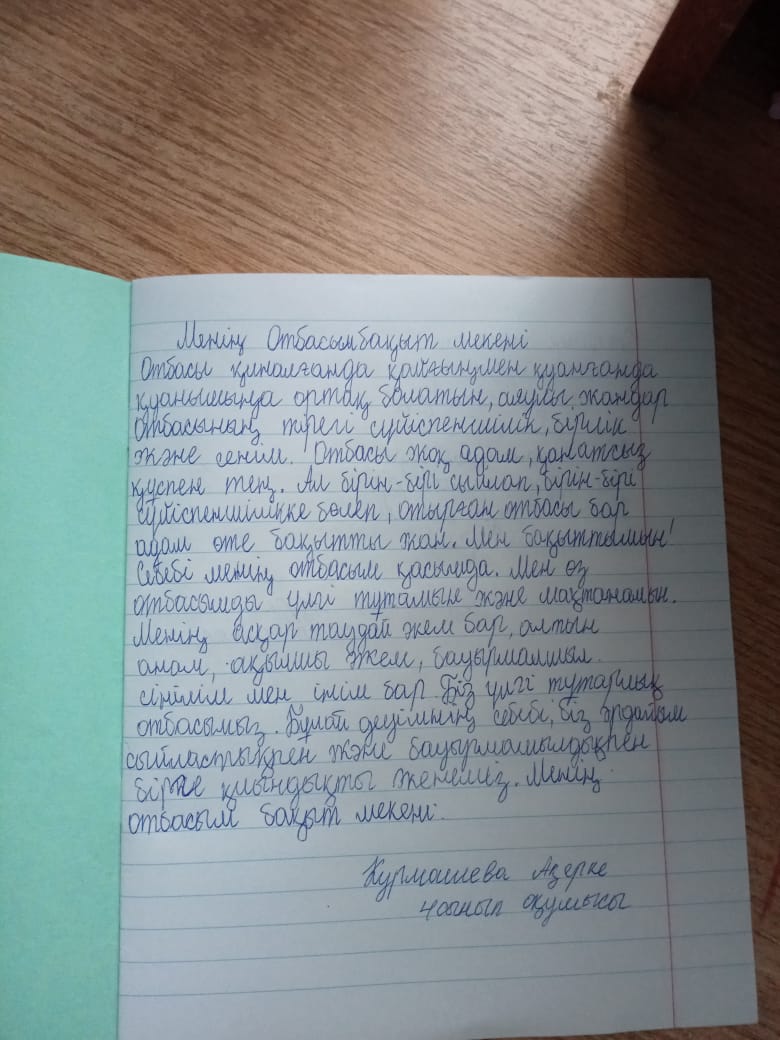 Менің Отбасым бақыт мекені
Отбасы қиналғанда қайғыңмен қуанғанда
қуанышыңа ортақ болатын, аяулы жандар
Отбасының тірегі сүйіспеншілік, бірлік
және сенім. Отбасы жоқ адам, қанатсыз
құспен тең. Ал бірін-бірі сыйлап, бірін-бірі
сүйіспеншілікке бөлеп, отырған отбасы бар
адам өте бақытты жан. Мен бақыттымын!
Себебі менің отбасым қасымда. Мен өз
отбасымды үлгі тұтамын және мақтанамын.
Менің асқар таудай әкем бар, алтын
анам, ақылшы әжем, бауырмалшыл
сіңілім мен інім бар. Біз үлгі тұтарлық
отбасымыз. Бұлай деуімнің себебі, біз әрдайым
сыйластықпен және бауырмашылдықпен
бірге қиындықты жеңеміз. Менің
отбасым бақыт мекені.
Курмашева Ақерке
4 сынып оқушысы